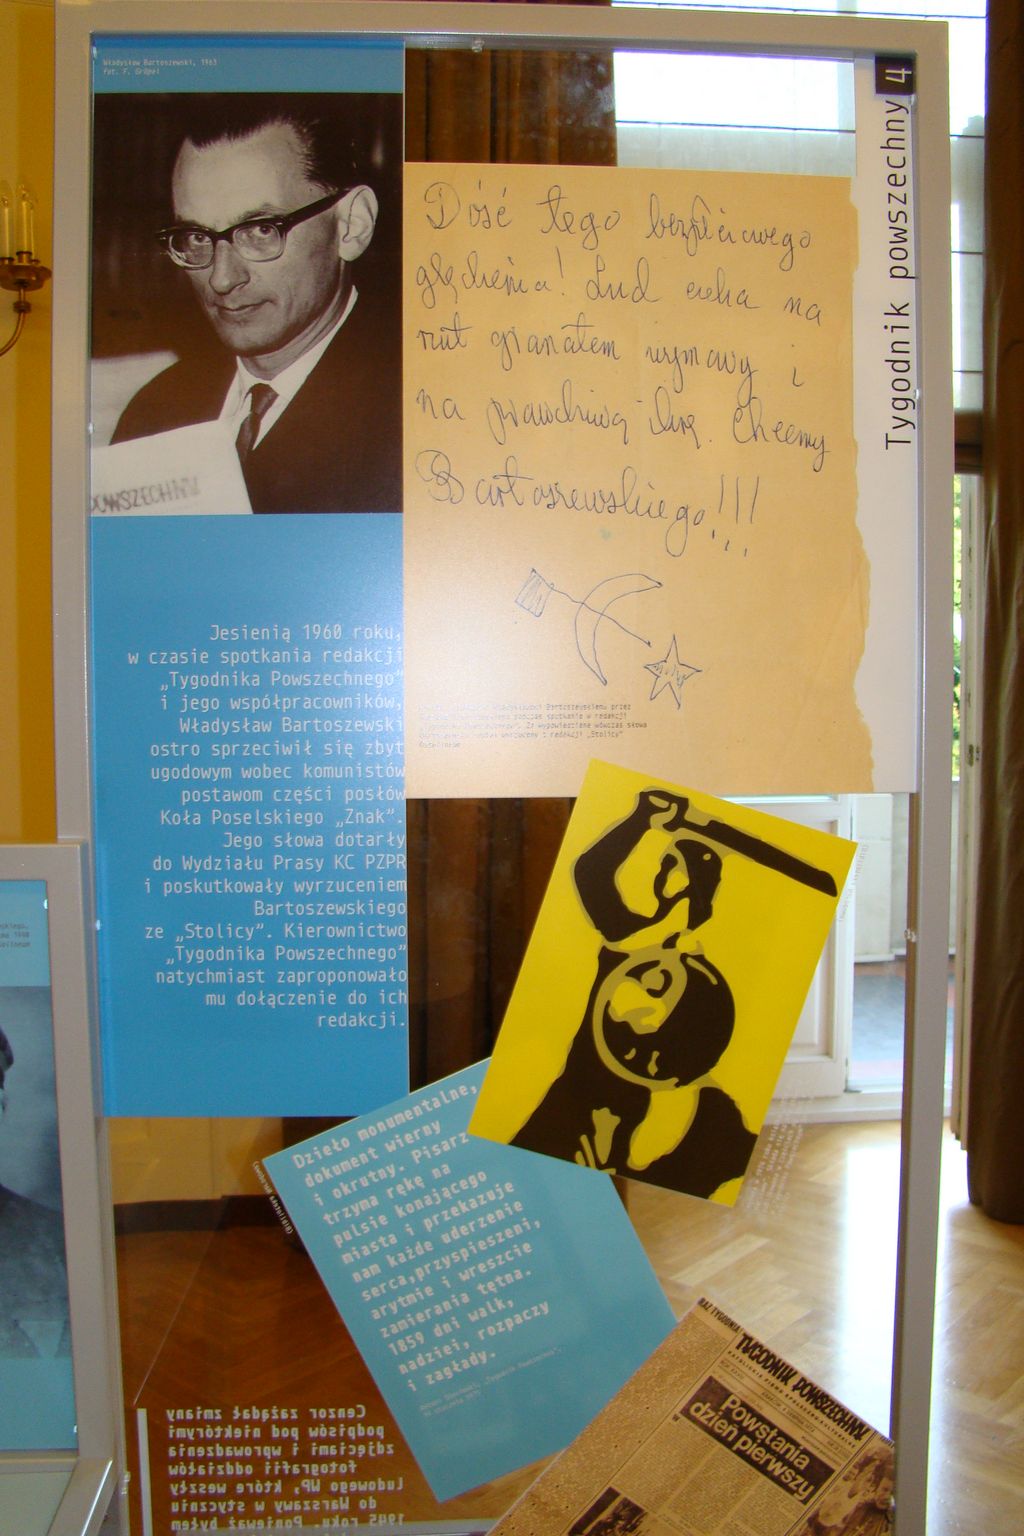 Władysław Bartoszewski, 1963
fot. T. Grüpel
4
Tygodnik powszechny
POWSZECHNY
Dość tego bezpłciowego
ględzenia! Lud czeka na
rzut granatem wymowy i
na prawdziwą ikrę. Chcemy
Bartoszewskiego!!!
Jesienią 1960 roku,
w czasie spotkania redakcji
„Tygodnika Powszechnego”
i jego współpracowników,
Władysław Bartoszewski
ostro sprzeciwił się zbyt
ugodowym wobec komunistów
postawom części posłów
Koła Poselskiego „Znak”.
Jego słowa dotarły
do Wydziału Prasy KC PZPR
i poskutkowały wyrzuceniem
Bartoszewskiego
ze „Stolicy”. Kierownictwo
„Tygodnika Powszechnego”
natychmiast zaproponowało
mu dołączenie do ich
redakcji.
Władysławowi Bartoszewskiemu przez
podczas spotkania w redakcji
Za wypowiedziane wówczas słowa
został wyrzucony z redakcji „Stolicy”
Dzieło monumentalne,
dokument wierny
i okrutny. Pisarz
trzyma rękę na
pulsie konającego
miasta i przekazuje
nam każde uderzenie
serca, przyspieszeni,
arytmie i wreszcie
zamierania tętna.
1859 dni walk,
nadziei, rozpaczy
i zagłady.
„Tygodnik Powszechny”,
Cenzor zażądał zmiany
podpisów pod niektórymi
zdjęciami i wprowadzenia
fotografii oddziałów
Ludowego WP, które weszły
do Warszawy w styczniu
1945 roku. Ponieważ byłem
TYGODNIK POWSZECHNY
KATOLICKIE PISMO SPOŁECZNO-KULTURALNE
Powstania
dzień pierwszy